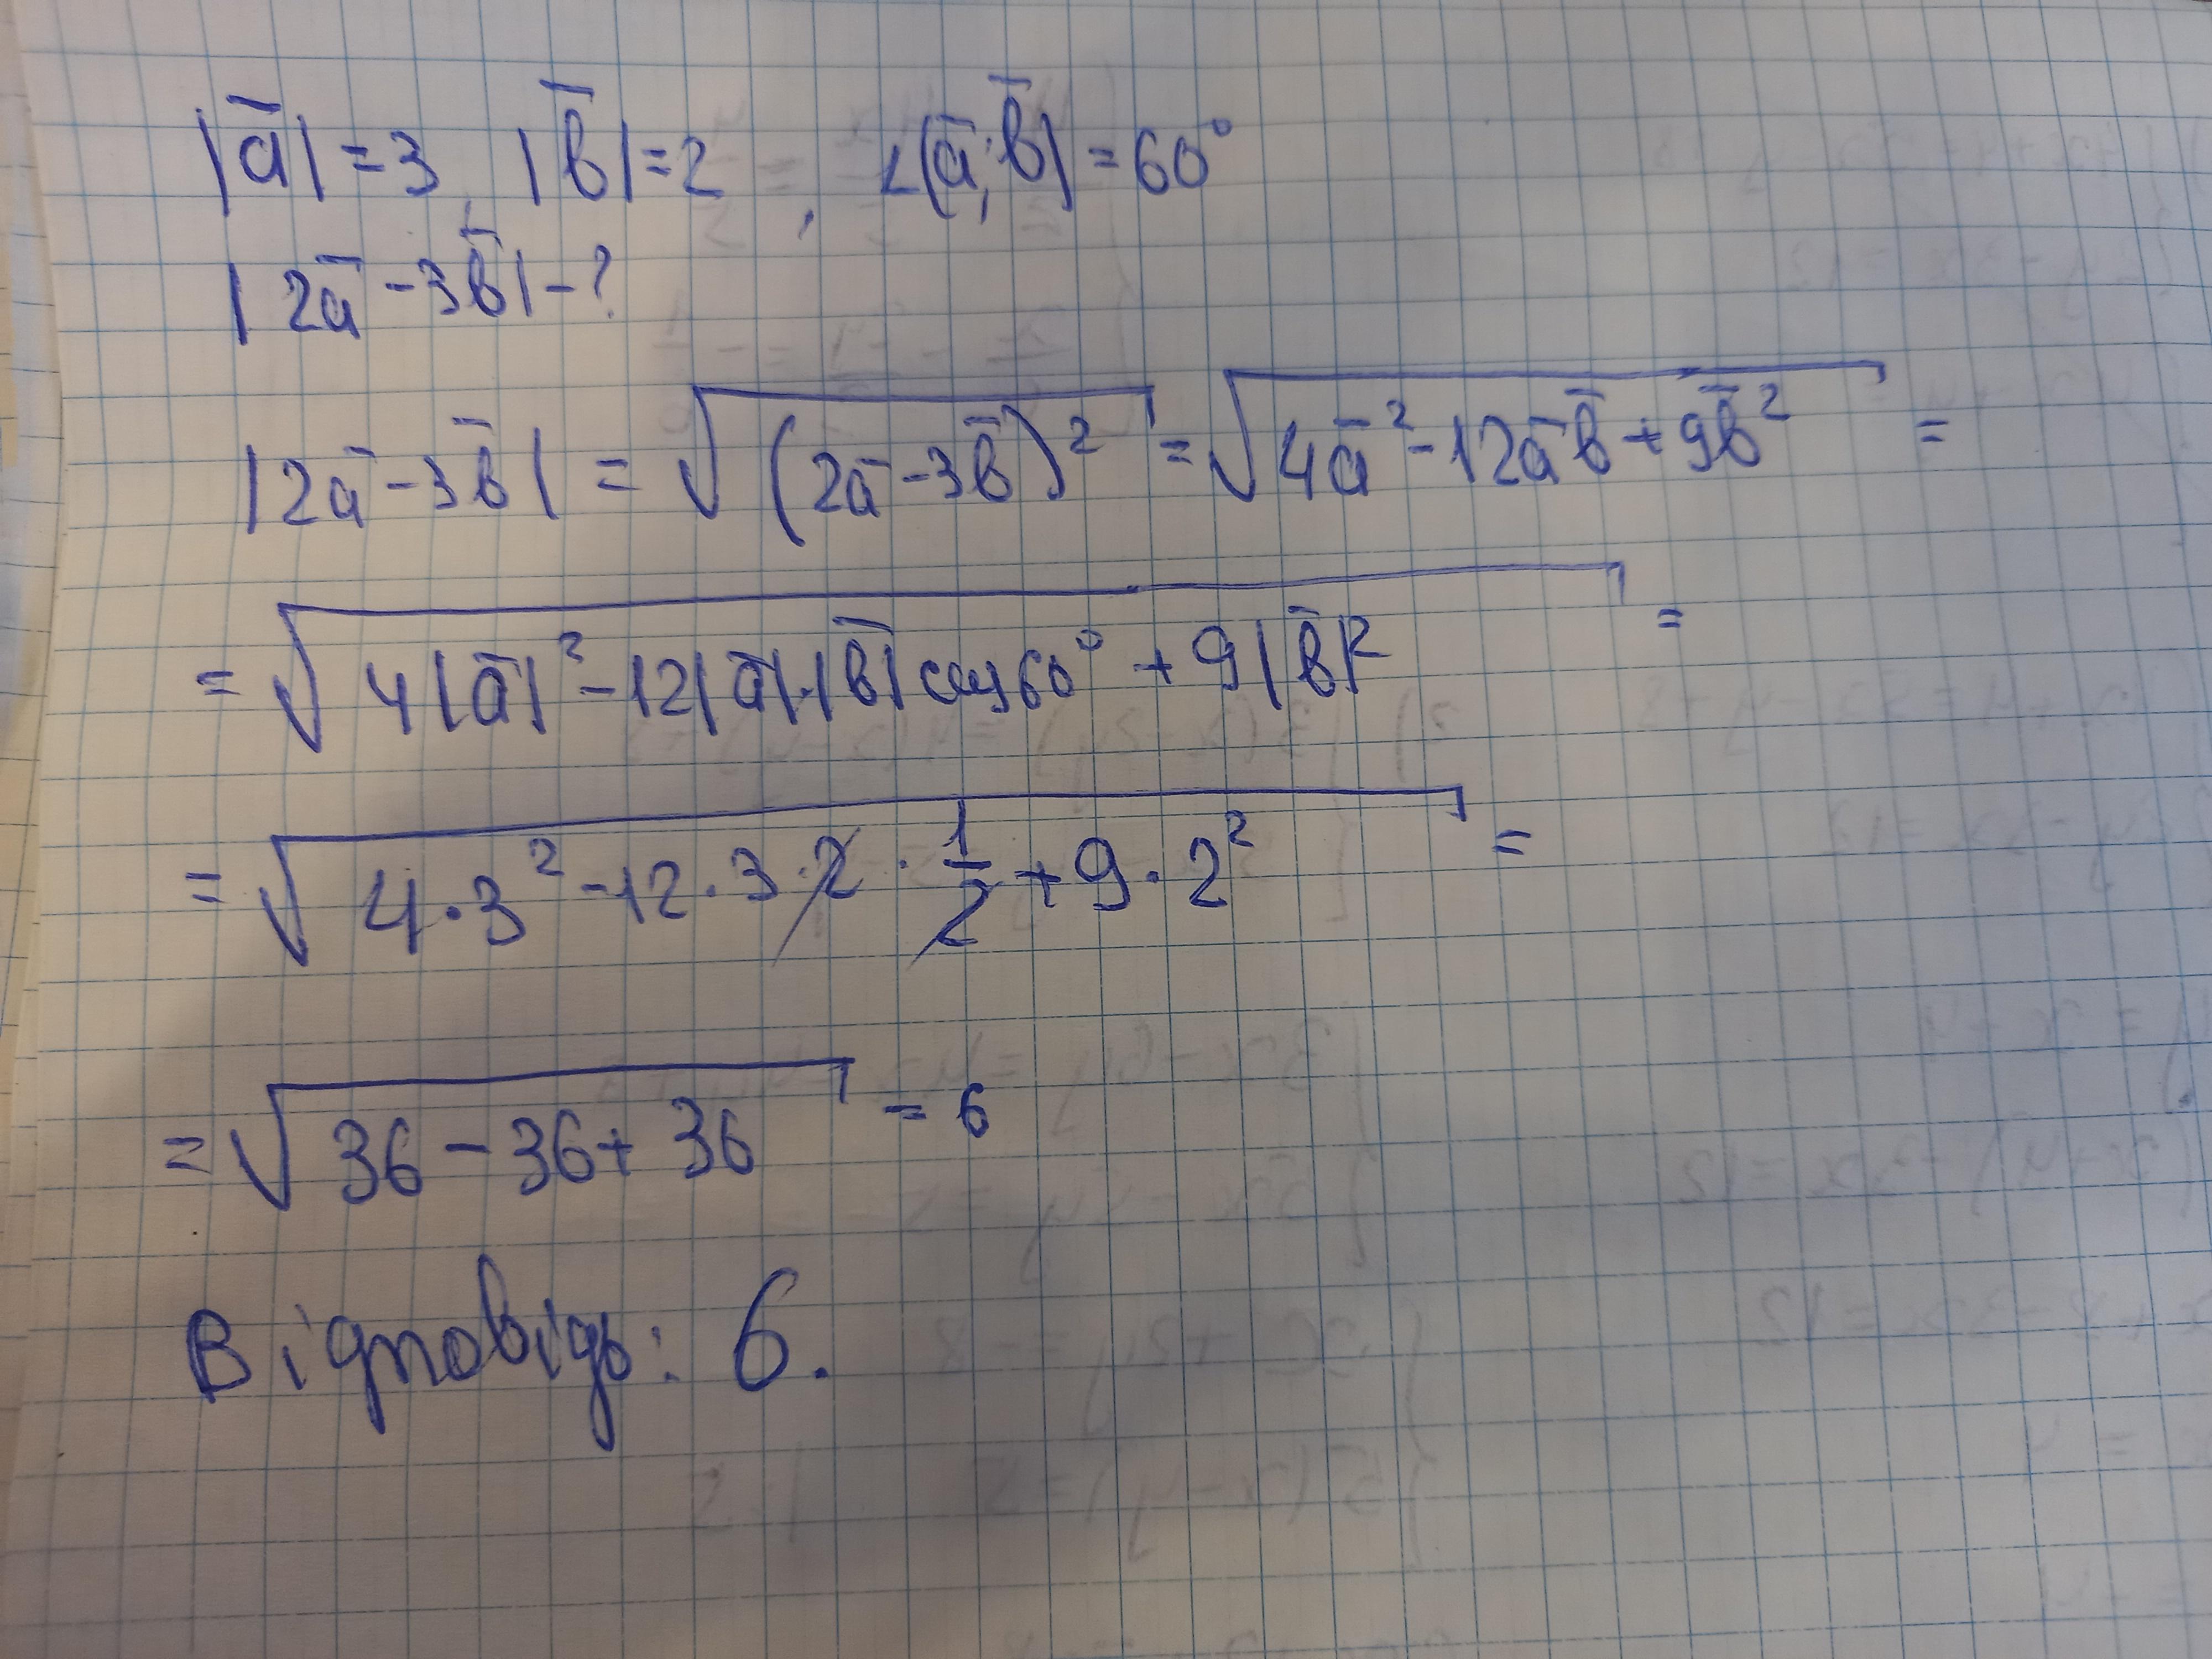 |a̅| = 3, |b̅| = 2, ∠(a̅; b̅) = 60°
|2a̅ - 3b̅| - ?
|2a̅ - 3b̅| = √(2a̅ - 3b̅)² = √4a̅² - 12a̅b̅ + 9b̅² =
= √4|a̅|² - 12|a̅|·|b̅| cos 60° + 9|b̅|² =
= √4·3² - 12·3·2·1/2 + 9·2² =
= √36 - 36 + 36 = 6
Відповідь: 6.